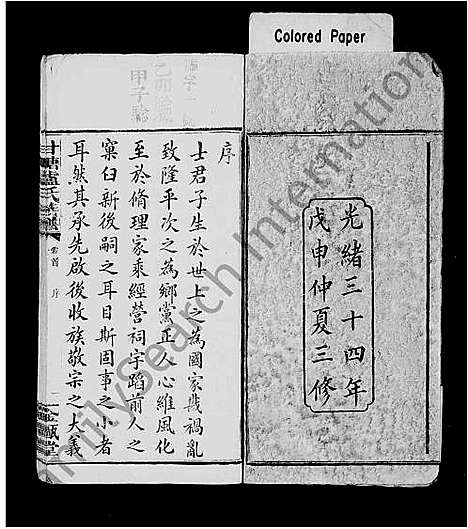 Colored Paper
光緒三十四年
戊申仲夏三修
序
士君子生於世上之為國家戡禍亂
致隆平次之為鄉黨正人心維風化
至於脩理家乘經營祠宇蹈前人之
窠臼新後嗣之耳目斯固事之小者
耳然其承先啟後收族敬宗之大義
氏族譜
卷首 序
一
堂
甲子
FamilySearch International